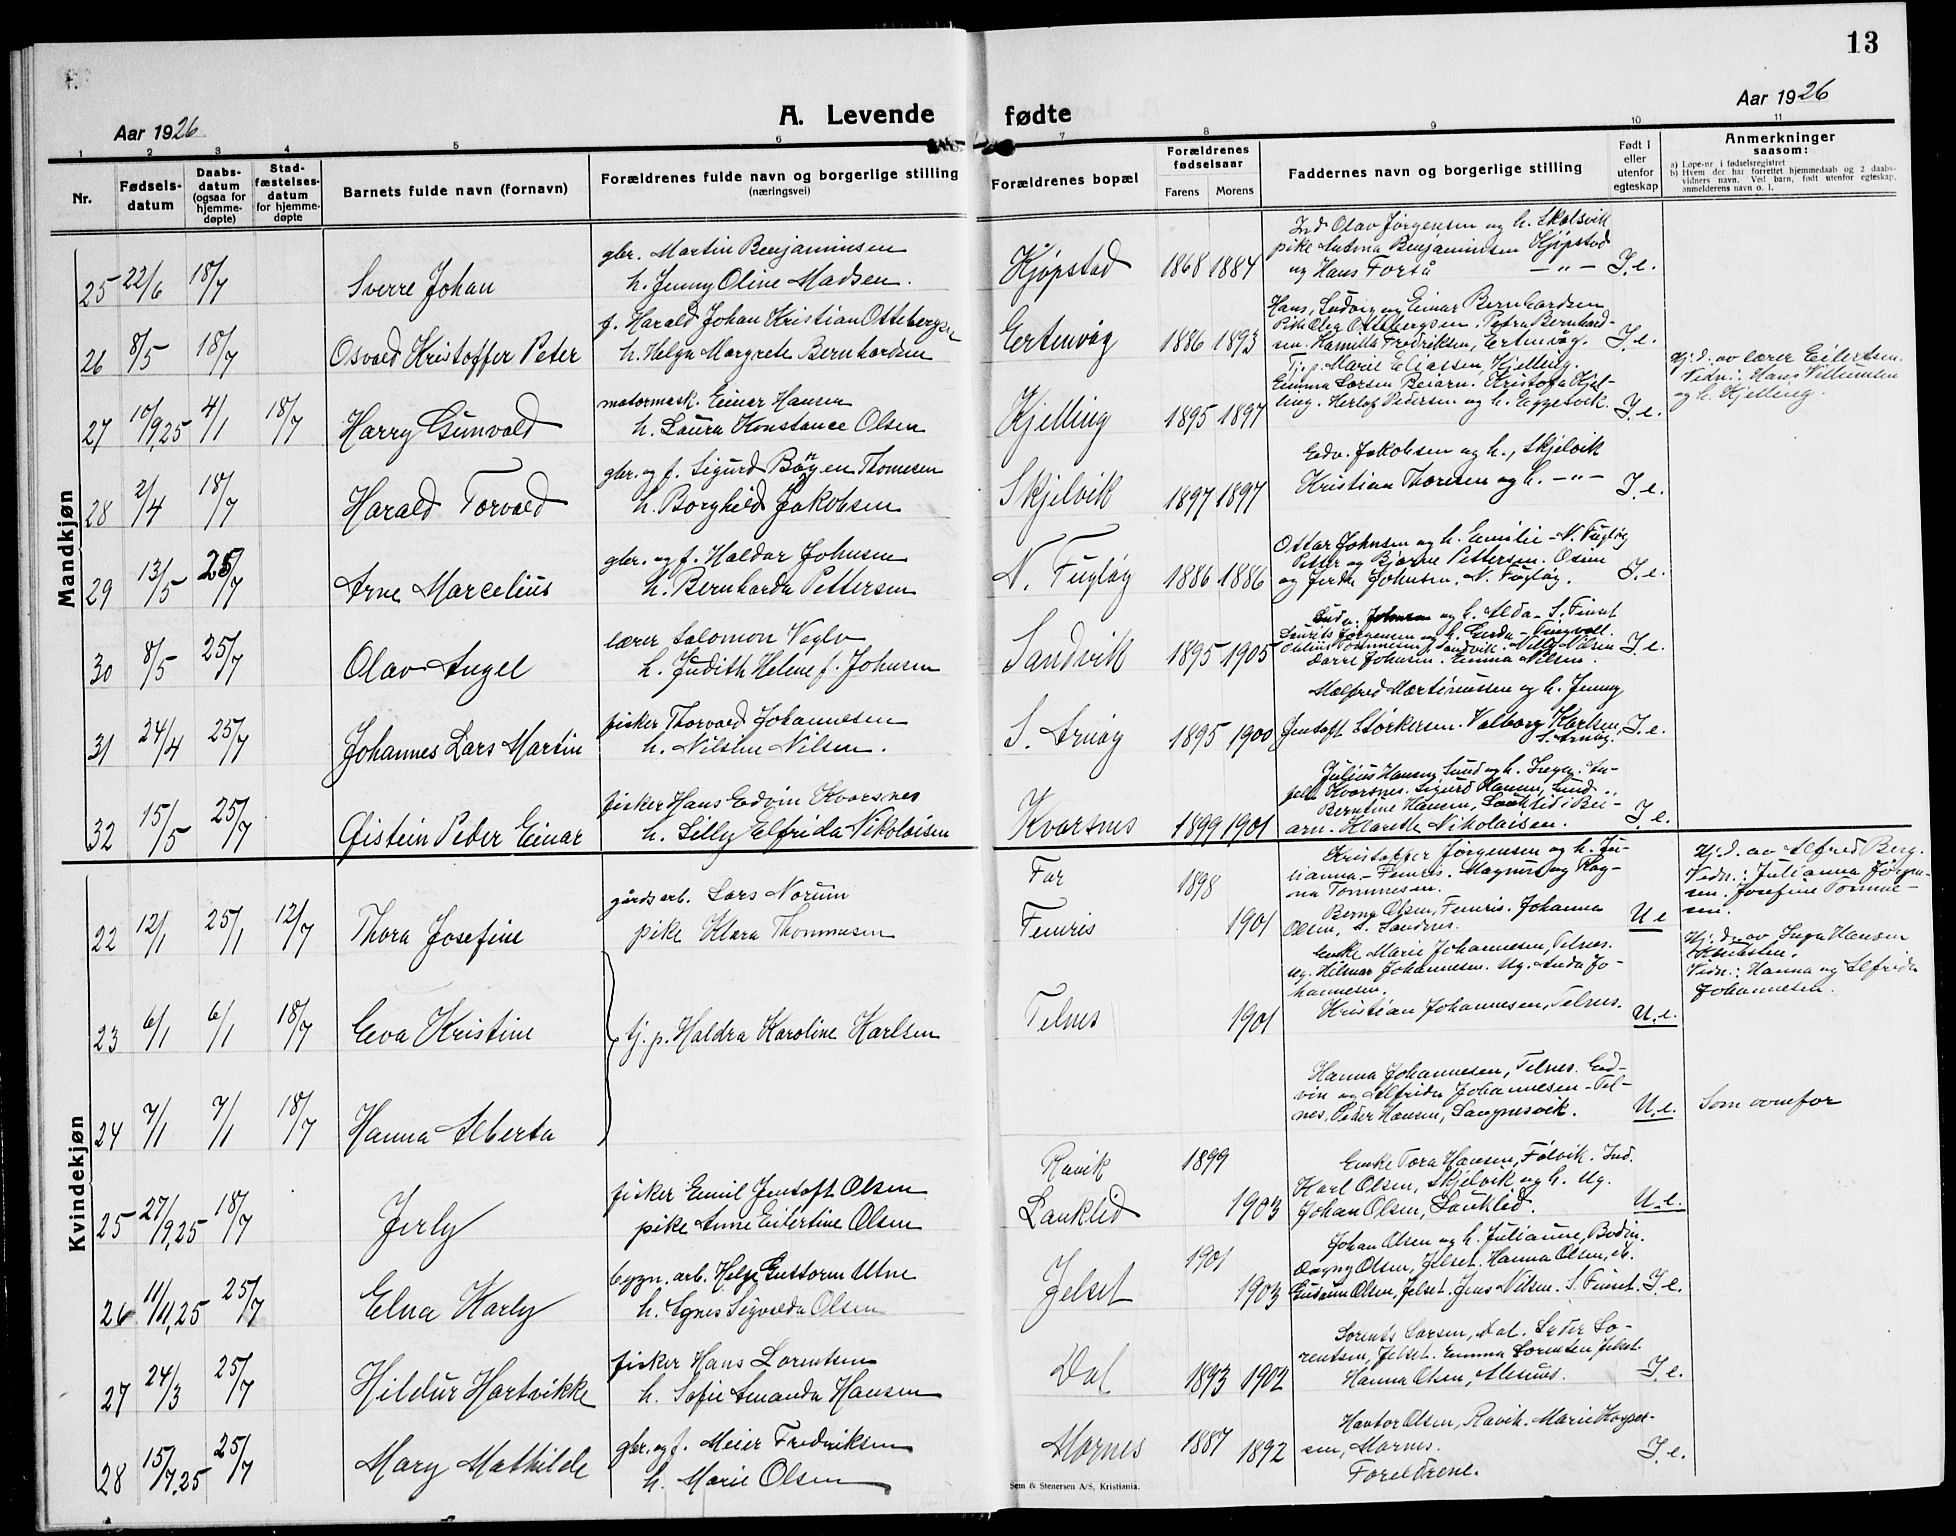 13
Aar 1926
A. Levende fødte
Aar 1926
1 2 3 4 5 6 7 8 9 10 11
Nr.
Fødsels-
datum
Daabs-
datum
(ogsaa for
hjemme-
døpte)
Stad-
fæstelses-
datum
for hjemme-
døpte
Barnets fulde navn (fornavn)
Forældrenes fulde navn og borgerlige stilling
(næringsvei)
Forældrenes bopæl
Forældrenes
fødselsaar
Farens Morens
Faddernes navn og borgerlige stilling
Født i
eller
utenfor
egteskap
Anmerkninger
saasom:
a) Løpe-nr i fødselsregistret
b) Hvem der har forrettet hjemmedaab og 2 daabs-
vidners navn. Ved barn, født utenfor egteskap,
anmelderens navn o. l.
Mandkjøn
25 22/6 18/7 Sverre Johan
gbr. Martin Benjaminsen
h. Jenny Oline Madsen.
Kjøpstad 1868 1884
Ind Olav Jørgensen og h. Skalsvik
pike Antona Benjaminsen Kjøpstad
og Hans Forså — „ — I. e.
26 8/5 18/7 Osvald Kristoffer Peter
f. Harald Johan Kristian Ottebergsen
h. Helga Margrete Bernhardsen
Ertenvåg 1886 1893
Hans, Ludvig og Einar Bernhardsen
Pike Olea Ottebergsen. Petra Bernhard-
sen. Hamilla Fredriksen, Ertenvåg. I. e.
27 10/9,25 4/1 18/7 Harry Gunvald
motormask. Einar Hansen
h. Laura Konstance Olsen
Kjelling 1895 1897
Tj. p. Marie Eliassen, Kjelling.
Emma Larsen Beiarn. Kristofa Kjel-
ling. Herlof Pedersen og h. Eggesvik. I. e.
Hj. d. av lærer Eilertsen.
Vidn.: Hans Villumsen
og h. Kjelling.
28 2/4 18/7 Harald Torvald
gbr. og f. Sigurd Bøyen Thomesen
h. Borghild Jakobsen
Skjelvik 1897 1897
Edv. Jakobsen og h., Skjelvik
Kristian Thoresen og h. — „ — I. e.
29 13/5 25/7 Arne Marcelius
gbr. og f. Haldor Johnsen
h. Bernharda Pettersen
N. Fugløy 1886 1886
Ottar Johnsen og h. Emilie – N. Fugløy
Petter og Bjarne Pettersen. Osine
og Jerda Johnsen. N. Fugløy. I. e.
30 8/5 25/7 Olav Angel
lærer Salomon Veglo
h. Judith Helene f. Johnsen
Sandvik 1895 1905
Johnsen og h. Alda – S. Finset
Laurits Jørgensen og h. Gerda – Tungvoll.
Sandvik. Nilsen I. e.
Johnsen. Emma Nilsen.
31 24/4 25/7 Johannes Lars Martin
fisker Thorvald Johannesen
h. Nilsine Nilsen.
S. Arnøy 1895 1900
Malfred Martinussen og h. Jenny
Jentoft Størkersen. Valborg Karlsen, I. e.
S. Arnøy.
32 15/5 25/7 Øistein Peder Einar
fisker Hans Edvin Kvarsnes
h. Lilly Elfrida Nikolaisen
Kvarsnes 1899 1901
Julius Hansen Sund og h. Inga. An-
Kvarsnes. Sigurd Hansen, Sund.
Berntine Hansen, Savklid i Bei-
arn. Klarethe Nikolaisen. I. e.
Kvindekjøn
22 12/1 25/1 12/7 Thora Josefine
gårdsarb. Lars Norum
pike Klara Thommesen
Far 1898
Femris 1901
Kristoffer Jørgensen og h. Ju-
lianna – Femris. Magnus og Rag-
na Tommesen.
Olsen, Femris. Johanna U e
Olsen, S. Sandnes.
Hj. d. av Alfred Berg.
Vidn.: Julianna Jørgen-
sen. Josefine Tomme-
sen.
23 6/1 6/1 18/7 Eva Kristine
tj. p. Haldra Karoline Karlsen
Telnes 1901
Enke Marie Johannesen, Telnes.
Ug. Hilmar Johannesen. Ug. Anda Jo-
hannesen.
Kristian Johannesen, Telnes. U. e.
Hj. d. av Inga Hansen
Vidn.: Hanna og Alfrida
Johannesen.
24 7/1 7/1 18/7 Hanna Alberta
Hanna Johannesen, Telnes. Ed-
vin og Alfrida Johannesen – Tel-
nes. Peder Hansen, Langnesvik. U. e.
Som ovnefor
25 27/9,25 18/7 Jerly
fisker Emil Jentoft Olsen
pike Anne Eilertine Olsen
Ravik 1899
Lauklid 1903
Enke Tora Hansen, Følvik. Ind.
Karl Olsen, Skjelvik og h. Ug.
Johan Olsen, Lauklid. U. e.
26 11/11,25 25/7 Elna Karly
bygn. arb. Helge Guttorm Utne
h. Agnes Sigvalda Olsen
Jelset 1901 1903
Johan Olsen og h. Julianne, Bodin.
Dagny Olsen, Jelset. Hanna Olsen, ib.
Gudrun Olsen, Jelset. Jens Nilsen. S. Finset. I. e.
27 24/3 25/7 Hildur Hartvikke
fisker Hans Lorentsen
h. Sofie Amanda Hansen
Dal 1893 1902
Sorents Larsen, Dal. Peder Lo-
rentsen, Jelset. Emma Lorentsen Jelset
Hanna Olsen, Alsnes. I. e.
28 15/7,25 25/7 Mary Mathilde
gbr. og f. Meier Fredriksen
h. Marie Olsen
Mornes 1887 1892
Hantor Olsen, Ravik. Marie Kasper-
sen, Marnes.
Foreldrene. I. e.
Sem & Stenersen A/S, Kristiania.